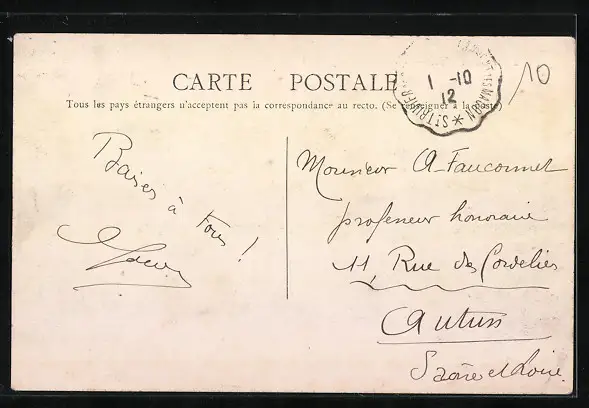 CARTE POSTALE
Tous les pays étrangers n'acceptent pas la correspondance au recto. (Se renseigner à la poste)
1 -10
12
10
Baisers à
tous !
Monsieur A. Fauconnet
professeur honoraire
11, Rue des Cordeliers
Autun
Saône et Loire